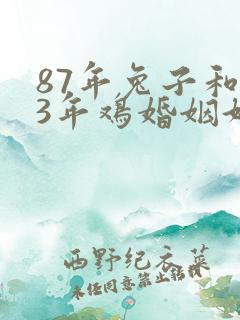 87年兔子和
3年鸡婚姻如
西野纪衣菜
未经同意禁止转载